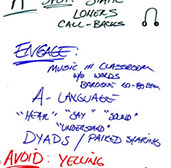 LONERS
CALL-BACKS
ENGAGE:
MUSIC IN CLASSROOM
W/O WORDS
BAROQUE 60-80 BPM
A- LANGUAGE
"HEAR" "SAY" "SOUND"
"UNDERSTAND"
DYADS / PAIRED SHARING
AVOID: YELLING